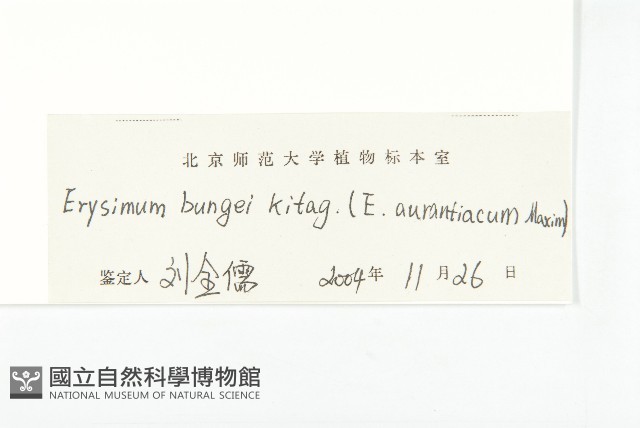 北京师范大学植物标本室
Erysimum bungei kitag. (E. aurantiacum Maxim)
鉴定人 刘全儒 2004年 11月26日
國立自然科學博物館
NATIONAL MUSEUM OF NATURAL SCIENCE